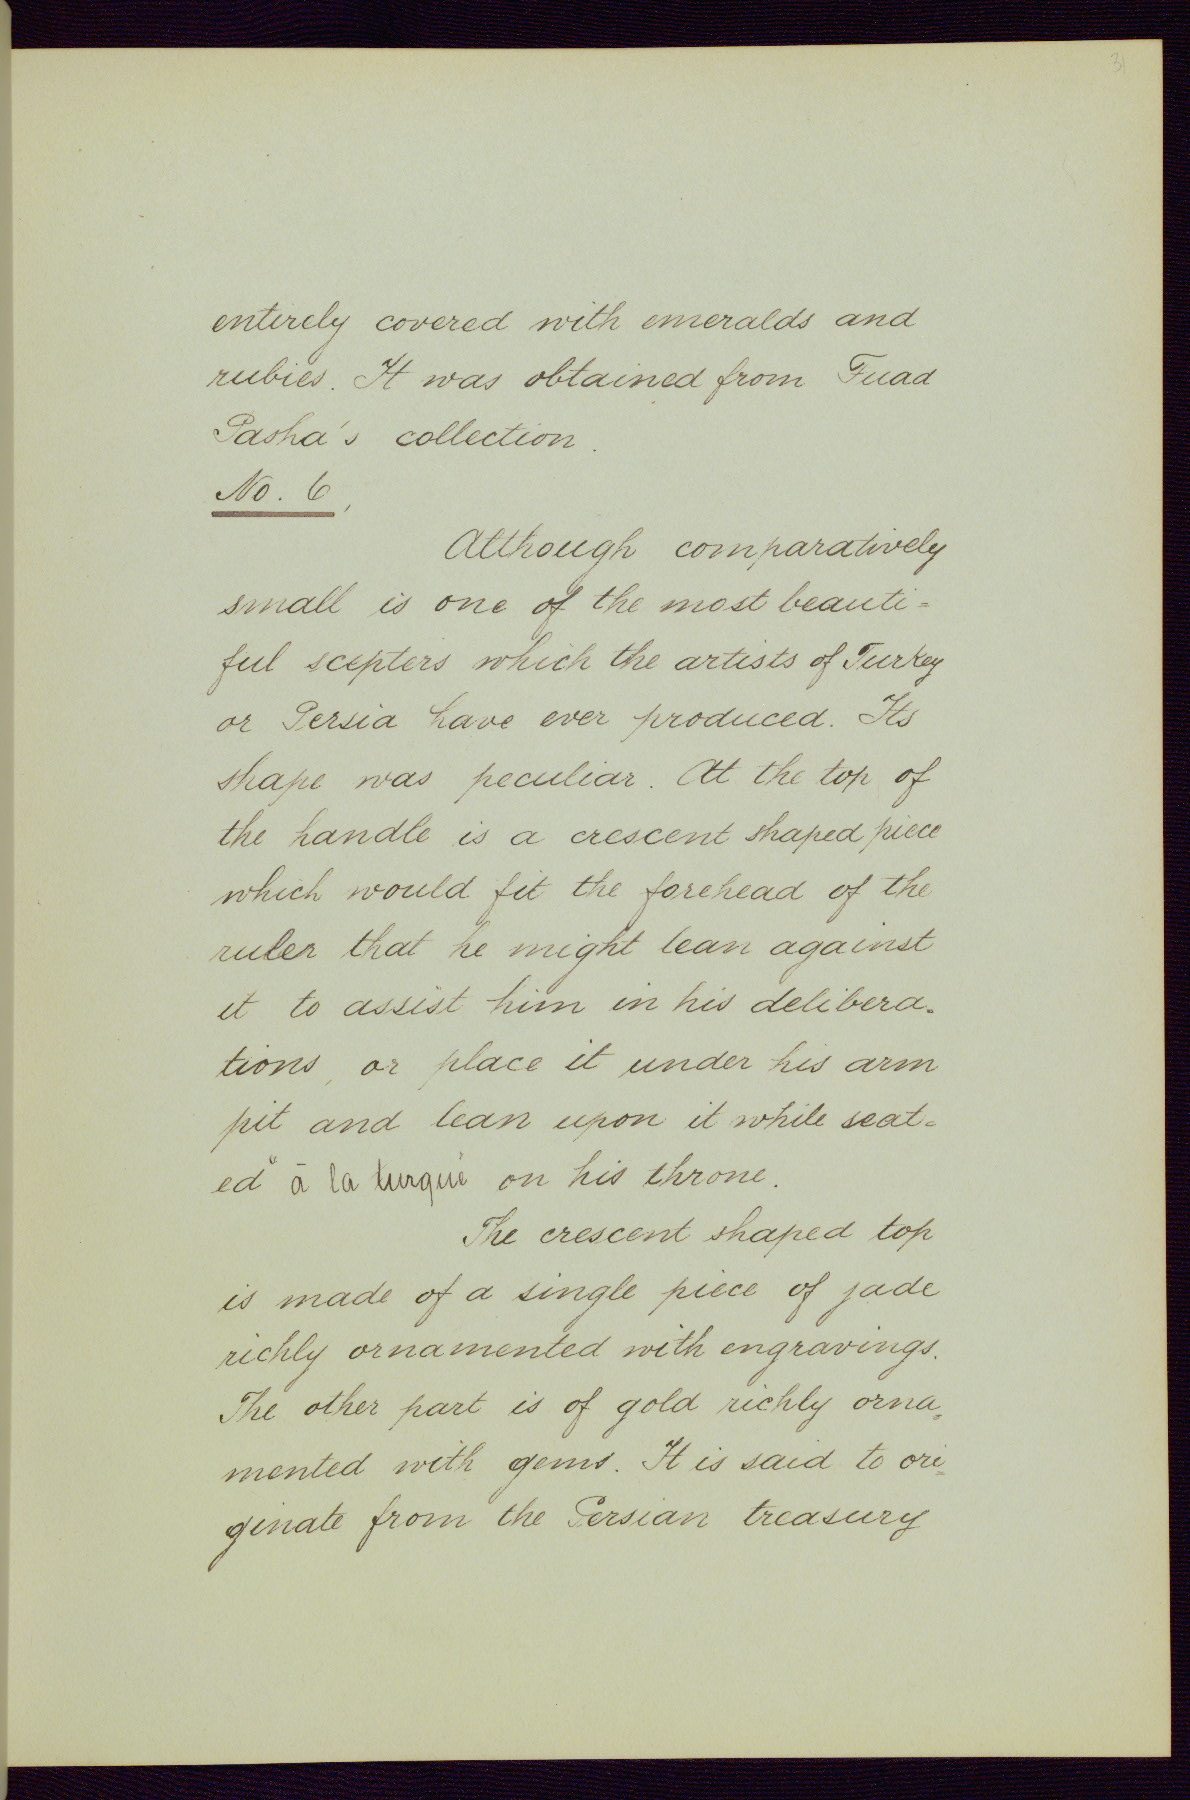 31
entirely covered with emeralds and
rubies. It was obtained from Fuad
Pasha's collection.
No. 6,
Although comparatively
small is one of the most beauti=
ful scepters which the artists of Turkey
or Persia have ever produced. Its
shape was peculiar. At the top of
the handle is a crescent shaped piece
which would fit the forehead of the
ruler that he might lean against
it to assist him in his delibera-
tions, or place it under his arm
pit and lean upon it while seat=
ed "à la turque" on his throne.
The crescent shaped top
is made of a single piece of jade
richly ornamented with engravings.
The other part is of gold richly orna=
mented with gems. It is said to ori=
ginate from the Persian treasury